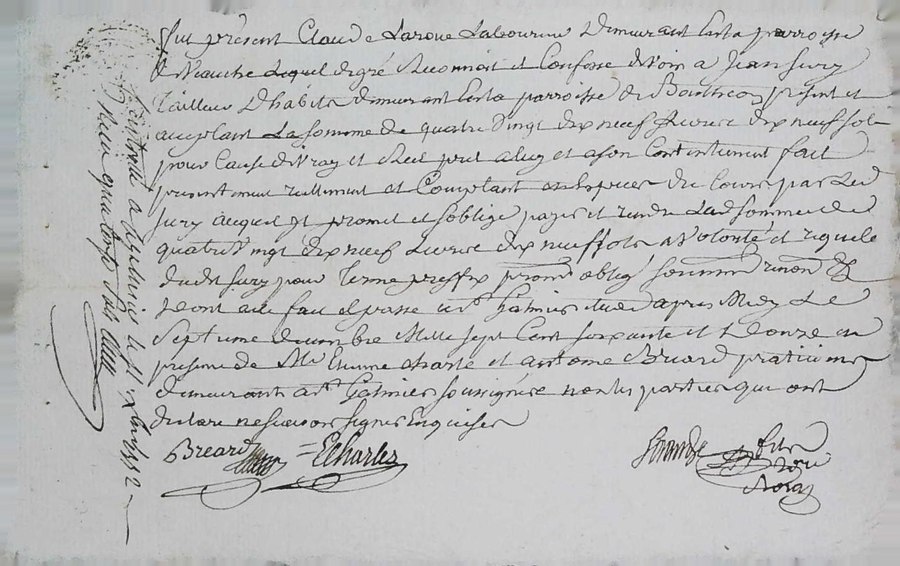 fut présent Claude Laroue Laboureur Demeurant En la parroisse
de Veauche Lequel de gré Reconnoit et Confesse devoir a Jean Jury
Tailleur Dhabits demeurant En la parroisse de présent et
acceptant La somme de quatre Vingt dix neuf Livres dix neuf sols
pour Cause de Vray et Réel prêt a luy et a son Contentement fait
présentement réellement et Comptant en Espèces du Cours par Led
Jury auquel Il promet et s'oblige payer et rendre Lad somme de
quatre vingt dix neuf Livres dix neuf sols a Volonté et requete
dudit Jury pour Terme preffix prom oblig soumm renon &
Dont acte fait et passé a St Galmier Etude apres Midy Le
Septieme Mille sept Cent soixante et Douze en
présence de Me Etienne Charle et antoine Bréard praticiens
demeurants a St Galmier soussignés non les parties qui ont
déclaré ne scavoir signer Enquises
Breard = ECharles
Controllé a St Galmier le 1772
Reçu quatorze sols